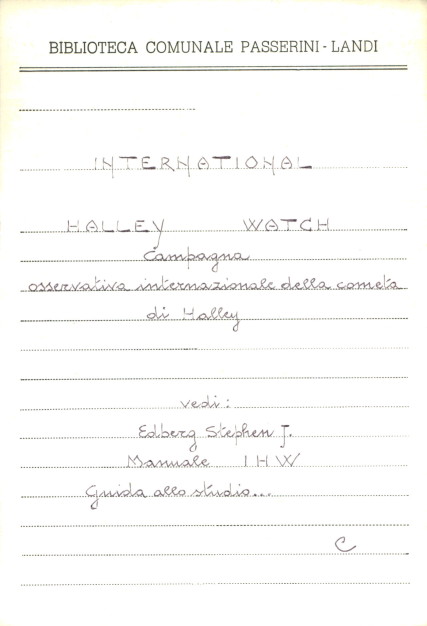 BIBLIOTECA COMUNALE PASSERINI - LANDI
INTERNATIONAL
HALLEY WATCH
Campagna
osservativa internazionale della cometa
di Halley
vedi:
Edberg Stephen J.
Manuale IHW
Guida allo studio...
C